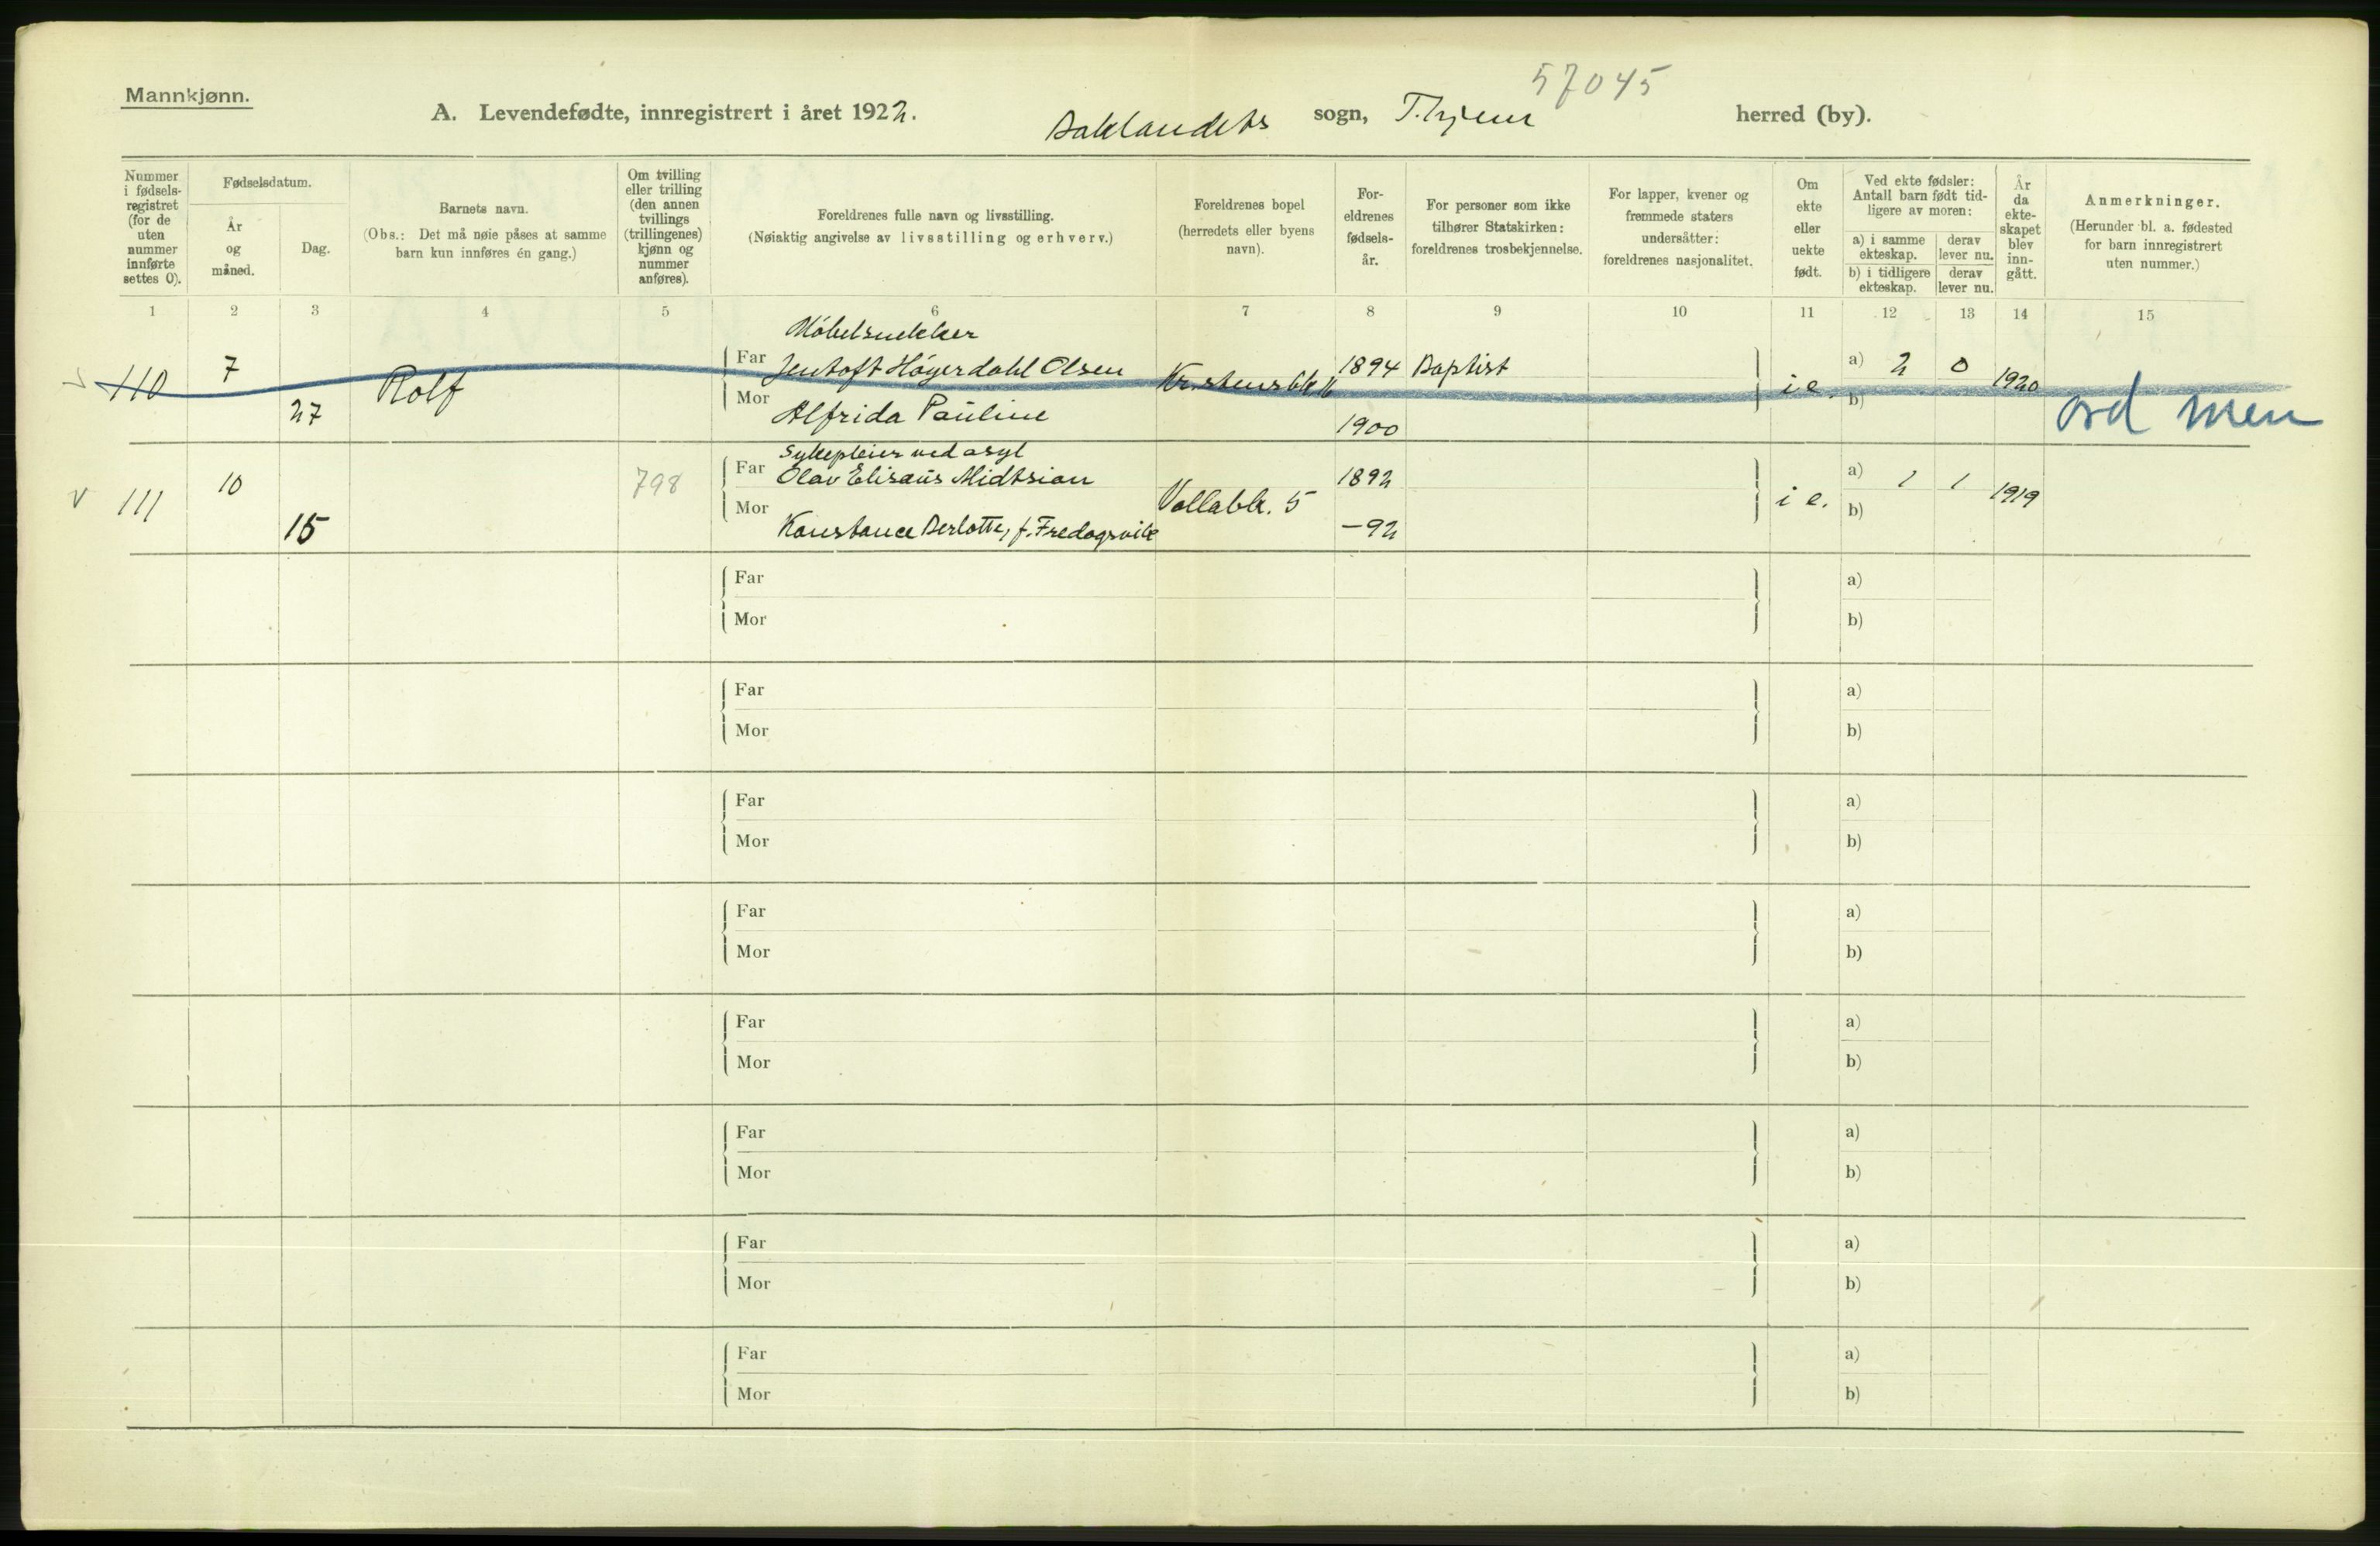 57045
Mannkjønn.
A. Levendefødte, innregistrert i året 1922. Baklandets sogn, T.hjem herred (by).
Nummer i fødsels-registret (for de uten nummer innførte settes 0).
Fødselsdatum.
År og måned.
Dag.
Barnets navn.
(Obs.: Det må nøie påses at samme barn kun innføres én gang.)
Om tvilling eller trilling (den annen tvillings (trillingenes) kjønn og nummer anføres).
Foreldrenes fulle navn og livsstilling.
(Nøiaktig angivelse av livsstilling og erhverv.)
Foreldrenes bopel (herredets eller byens navn).
For-eldrenes fødsels-år.
For personer som ikke tilhører Statskirken: foreldrenes trosbekjennelse.
For lapper, kvener og fremmede staters undersåtter: foreldrenes nasjonalitet.
Om ekte eller uekte født.
Ved ekte fødsler: Antall barn født tid-ligere av moren:
a) i samme ekteskap.
derav lever nu.
b) i tidligere ekteskap.
derav lever nu.
År da ekte-skapet blev inn-gått.
Anmerkninger.
(Herunder bl. a. fødested for barn innregistrert uten nummer.)
1 2 3 4 5 6 7 8 9 10 11 12 13 14 15
Møbelsnekker
110 7 27 Rolf
Far Jentoft Høyerdahl Olsen 1894 Baptist i e. a) 2 0 1920
Mor Alfrida Pauline 1900 b)
ord men
Sykepleier ved asyl
v 111 10 15 798
Far Olav Elisæus Midtsian 1892 a) 1 1 1919
Vollabk. 5 i e.
Mor Konstance Berlotte, f. Fredagsvik -92 b)
Far a)
Mor b)
Far a)
Mor b)
Far a)
Mor b)
Far a)
Mor b)
Far a)
Mor b)
Far a)
Mor b)
Far a)
Mor b)
Far a)
Mor b)